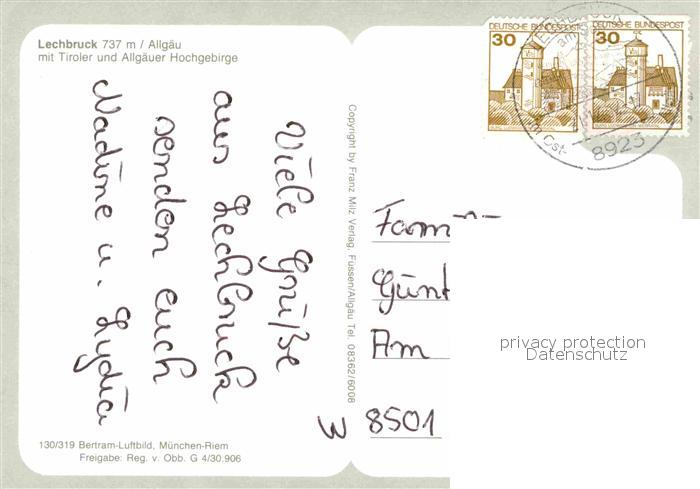 Lechbruck 737 m / Allgäu
mit Tiroler und Allgäuer Hochgebirge
Viele Grüße
aus Lechbruck
senden euch
Nadine u. Lydia
130/319 Bertram-Luftbild, München-Riem
Freigabe: Reg. v. Obb. G 4/30.906
Copyright by Franz Milz Verlag, Füssen/Allgäu Tel. 08362/6008
DEUTSCHE BUNDESPOST
30
DEUTSCHE BUNDESPOST
30
8923
Fam
Günt
Am
W 8501
privacy protection
Datenschutz